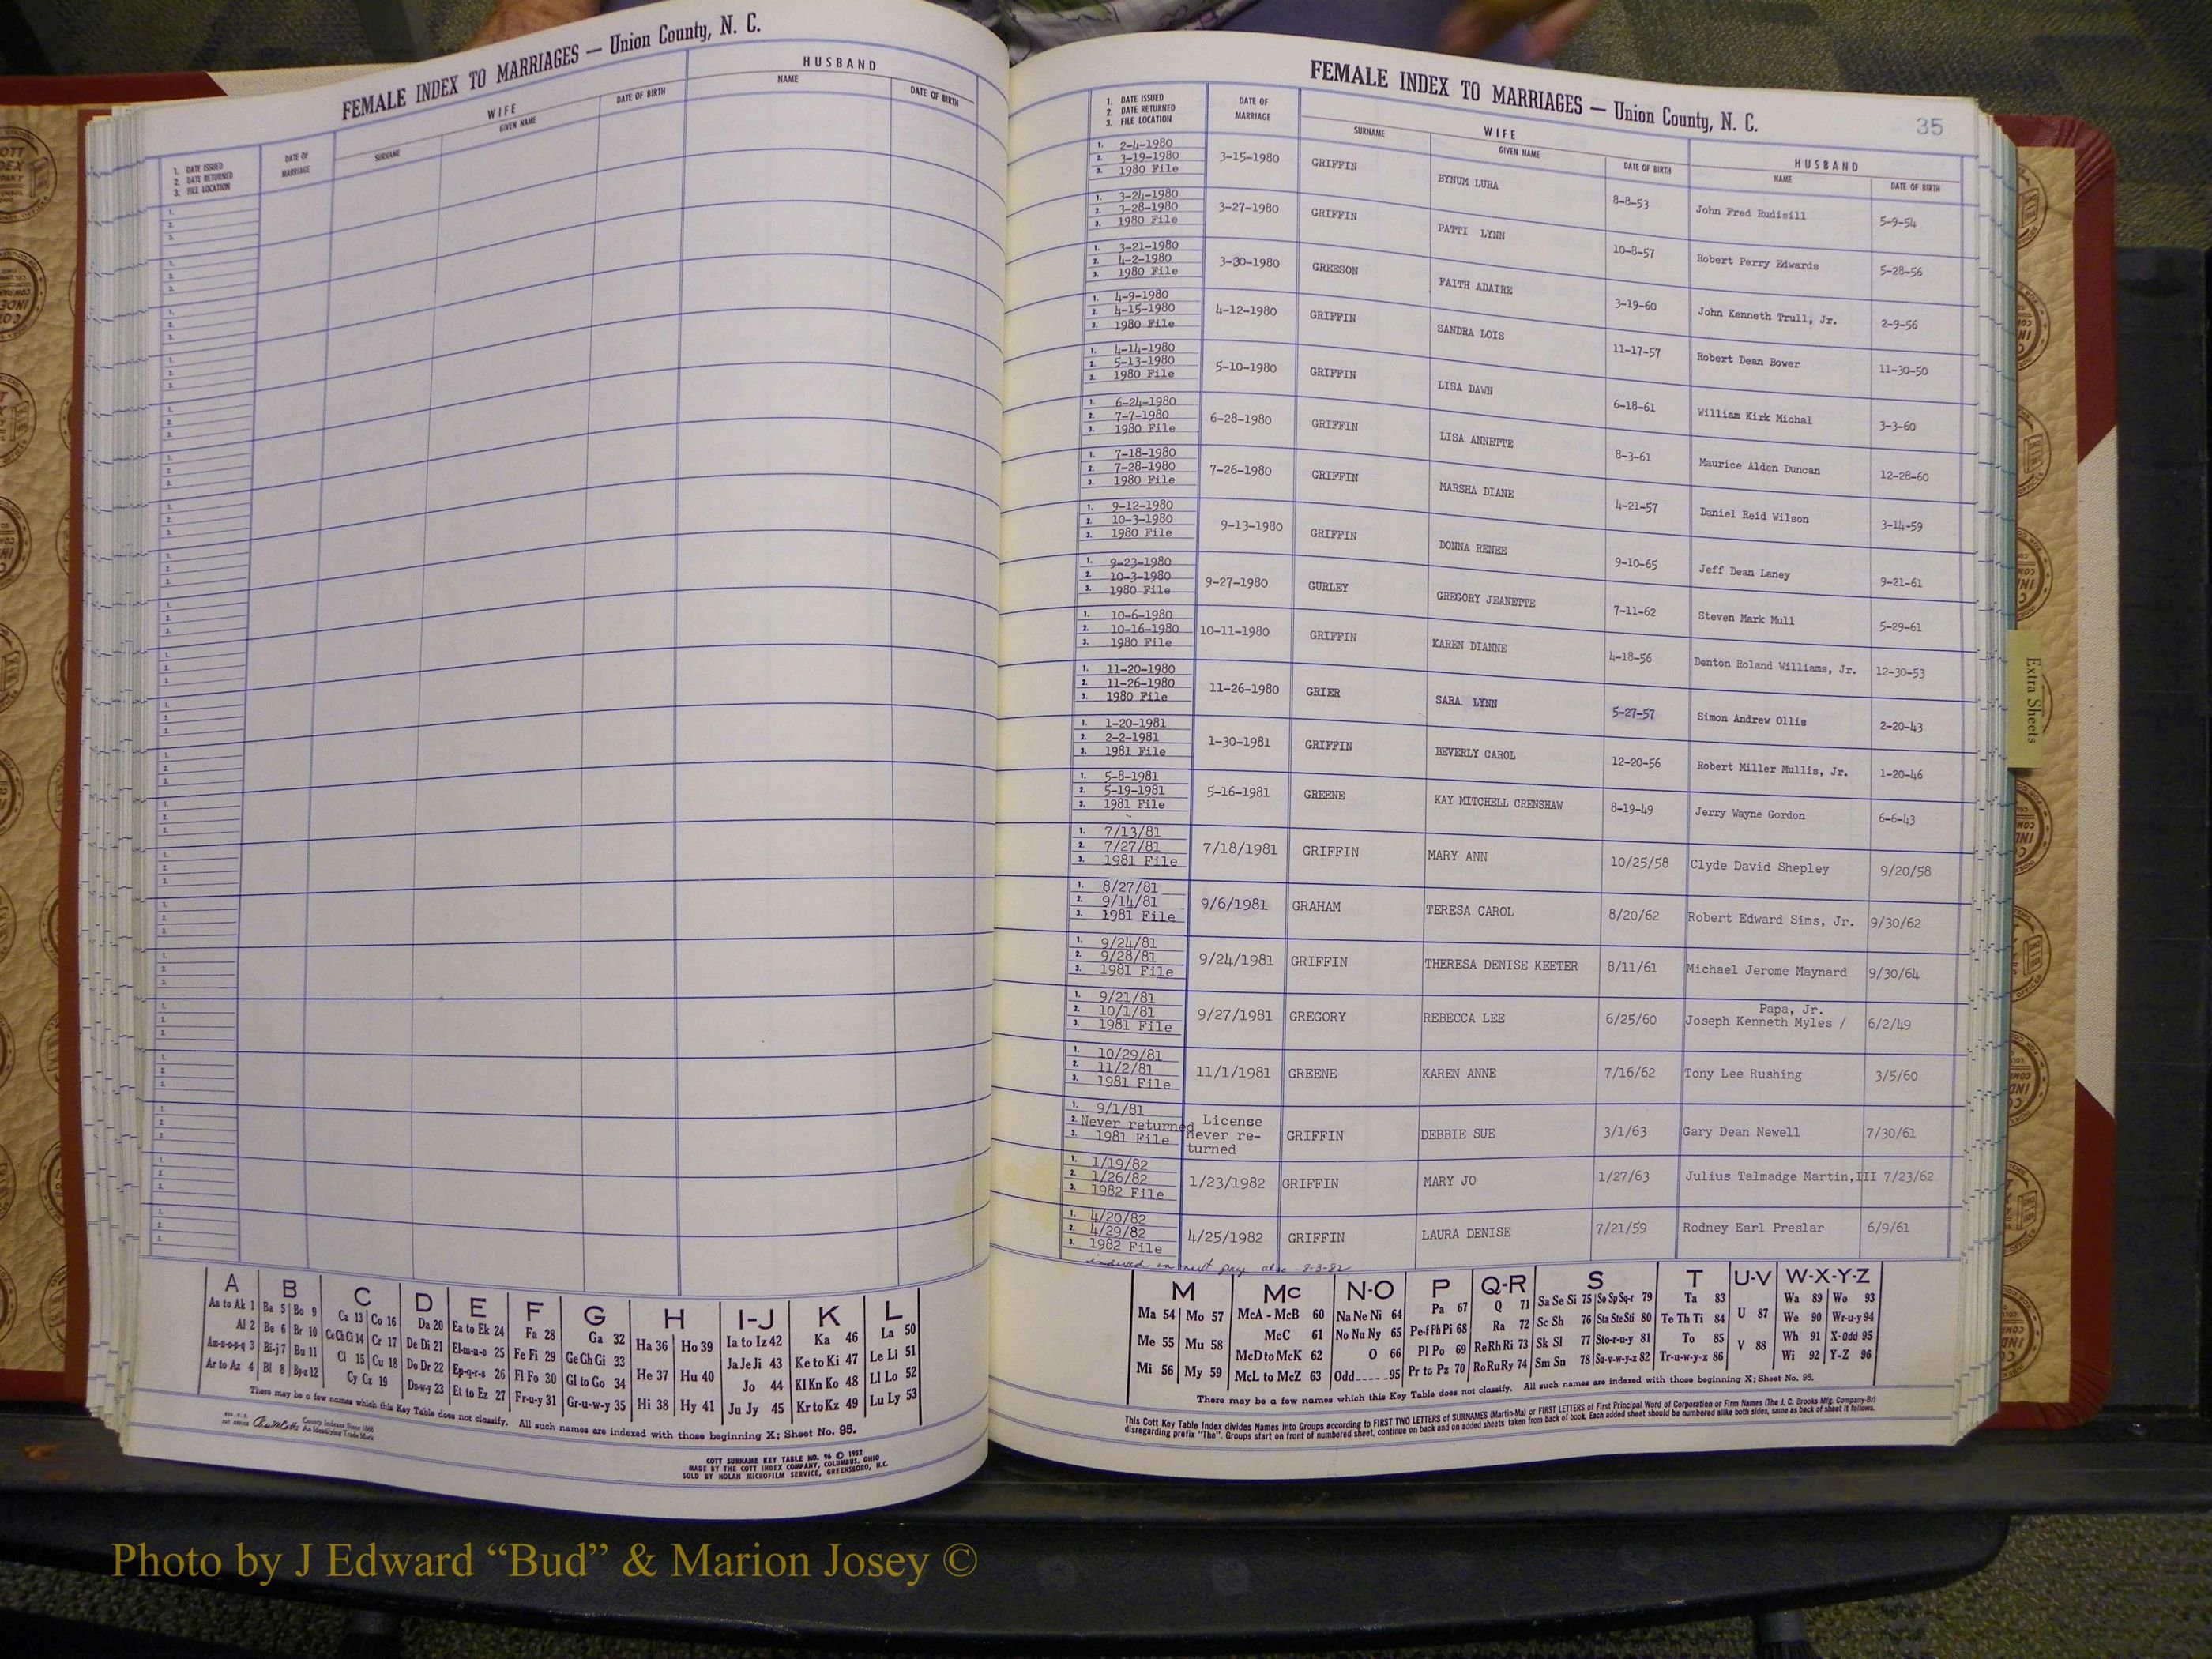 FEMALE INDEX TO MARRIAGES — Union County, N. C.
WIFE HUSBAND
1. DATE ISSUED
2. DATE RETURNED
3. FILE LOCATION
DATE OF MARRIAGE SURNAME GIVEN NAME DATE OF BIRTH NAME DATE OF BIRTH
A B C D E F G H I-J K L
Aa to Ak 1 Ba 5 Bo 9 Ca 13 Co 16 Da 20 Ea to Ek 24 Fa 28 Ga 32 Ha 36 Ho 39 Ia to Iz 42 Ka 46 La 50
Al 2 Be 6 Br 10 Ce Ch Ci 14 Cr 17 De Di 21 El-m-n-o 25 Fe Fi 29 Ge Gh Gi 33 He 37 Hu 40 Ja Je Ji 43 Ke to Ki 47 Le Li 51
Am-n-o-p-q 3 Bi-j 7 Bu 11 Cl 15 Cu 18 Do Dr 22 Ep-q-r-s 26 Fl Fo 30 Gl to Go 34 Hi 38 Hy 41 Jo 44 Kl Kn Ko 48 Ll Lo 52
Ar to Az 4 Bl 8 By-z 12 Cy Cz 19 Du-w-y 23 Et to Ez 27 Fr-u-y 31 Gr-u-w-y 35 Ju Jy 45 Kr to Kz 49 Lu Ly 53
There may be a few names which this Key Table does not classify. All such names are indexed with those beginning X; Sheet No. 95.
County Indexes Since 1888
An Identifying Trade Mark
COTT SURNAME KEY TABLE NO. 96 © 1952
MADE BY THE COTT INDEX COMPANY, COLUMBUS, OHIO
SOLD BY NOLAN MICROFILM SERVICE, GREENSBORO, N.C.
FEMALE INDEX TO MARRIAGES — Union County, N. C. 35
WIFE HUSBAND
1. DATE ISSUED
2. DATE RETURNED
3. FILE LOCATION
DATE OF MARRIAGE SURNAME GIVEN NAME DATE OF BIRTH NAME DATE OF BIRTH
1. 2-4-1980
2. 3-19-1980
3. 1980 File
3-15-1980 GRIFFIN BYNUM LURA 8-8-53 John Fred Rudisill 5-9-54
1. 3-24-1980
2. 3-28-1980
3. 1980 File
3-27-1980 GRIFFIN PATTI LYNN 10-8-57 Robert Perry Edwards 5-28-56
1. 3-21-1980
2. 4-2-1980
3. 1980 File
3-30-1980 GREESON FAITH ADAIRE 3-19-60 John Kenneth Trull, Jr. 2-9-56
1. 4-9-1980
2. 4-15-1980
3. 1980 File
4-12-1980 GRIFFIN SANDRA LOIS 11-17-57 Robert Dean Bower 11-30-50
1. 4-14-1980
2. 5-13-1980
3. 1980 File
5-10-1980 GRIFFIN LISA DAWN 6-18-61 William Kirk Michal 3-3-60
1. 6-24-1980
2. 7-7-1980
3. 1980 File
6-28-1980 GRIFFIN LISA ANNETTE 8-3-61 Maurice Alden Duncan 12-28-60
1. 7-18-1980
2. 7-28-1980
3. 1980 File
7-26-1980 GRIFFIN MARSHA DIANE 4-21-57 Daniel Reid Wilson 3-14-59
1. 9-12-1980
2. 10-3-1980
3. 1980 File
9-13-1980 GRIFFIN DONNA RENEE 9-10-65 Jeff Dean Laney 9-21-61
1. 9-23-1980
2. 10-3-1980
3. 1980 File
9-27-1980 GURLEY GREGORY JEANETTE 7-11-62 Steven Mark Mull 5-29-61
1. 10-6-1980
2. 10-16-1980
3. 1980 File
10-11-1980 GRIFFIN KAREN DIANNE 4-18-56 Denton Roland Williams, Jr. 12-30-53
1. 11-20-1980
2. 11-26-1980
3. 1980 File
11-26-1980 GRIER SARA LYNN 5-27-57 Simon Andrew Ollis 2-20-43
1. 1-20-1981
2. 2-2-1981
3. 1981 File
1-30-1981 GRIFFIN BEVERLY CAROL 12-20-56 Robert Miller Mullis, Jr. 1-20-46
1. 5-8-1981
2. 5-19-1981
3. 1981 File
5-16-1981 GREENE KAY MITCHELL CRENSHAW 8-19-49 Jerry Wayne Gordon 6-6-43
1. 7/13/81
2. 7/27/81
3. 1981 File
7/18/1981 GRIFFIN MARY ANN 10/25/58 Clyde David Shepley 9/20/58
1. 8/27/81
2. 9/14/81
3. 1981 File
9/6/1981 GRAHAM TERESA CAROL 8/20/62 Robert Edward Sims, Jr. 9/30/62
1. 9/24/81
2. 9/28/81
3. 1981 File
9/24/1981 GRIFFIN THERESA DENISE KEETER 8/11/61 Michael Jerome Maynard 9/30/64
1. 9/21/81
2. 10/1/81
3. 1981 File
Papa, Jr.
9/27/1981 GREGORY REBECCA LEE 6/25/60 Joseph Kenneth Myles / 6/2/49
1. 10/29/81
2. 11/2/81
3. 1981 File
11/1/1981 GREENE KAREN ANNE 7/16/62 Tony Lee Rushing 3/5/60
1. 9/1/81
2. Never returned
3. 1981 File
License never re-turned GRIFFIN DEBBIE SUE 3/1/63 Gary Dean Newell 7/30/61
1. 1/19/82
2. 1/26/82
3. 1982 File
1/23/1982 GRIFFIN MARY JO 1/27/63 Julius Talmadge Martin,III 7/23/62
1. 4/20/82
2. 4/29/82
3. 1982 File
4/25/1982 GRIFFIN LAURA DENISE 7/21/59 Rodney Earl Preslar 6/9/61
indexed on next page also - 8-3-82
M Mc N-O P Q-R S T U-V W-X-Y-Z
Ma 54 Mo 57 McA - McB 60 Na Ne Ni 64 Pa 67 Q 71 Sa Se Si 75 So Sp Sq-r 79 Ta 83 U 87 Wa 89 Wo 93
Me 55 Mu 58 McC 61 No Nu Ny 65 Pe-f Ph Pi 68 Ra 72 Sc Sh 76 Sta Ste Sti 80 Te Th Ti 84 V 88 We 90 Wr-u-y 94
Mi 56 My 59 McD to McK 62 O 66 Pl Po 69 Re Rh Ri 73 Sk Sl 77 Sto-r-u-y 81 To 85 Wh 91 X-Odd 95
McL to McZ 63 Odd 95 Pr to Pz 70 Ro Ru Ry 74 Sm Sn 78 Su-v-w-y-z 82 Tr-u-w-y-z 86 Wi 92 Y-Z 96
There may be a few names which this Key Table does not classify. All such names are indexed with those beginning X; Sheet No. 95.
This Cott Key Table Index divides Names into Groups according to FIRST TWO LETTERS of SURNAMES (Martin-Ma) or FIRST LETTERS of First Principal Word of Corporation or Firm Names (The J. C. Brooks Mfg. Company-Br)
disregarding prefix "The". Groups start on front of numbered sheet, continue on back and on added sheets taken from back of book. Each added sheet should be numbered alike both sides, same as back of sheet it follows.
Extra Sheets
Photo by J Edward “Bud” & Marion Josey ©